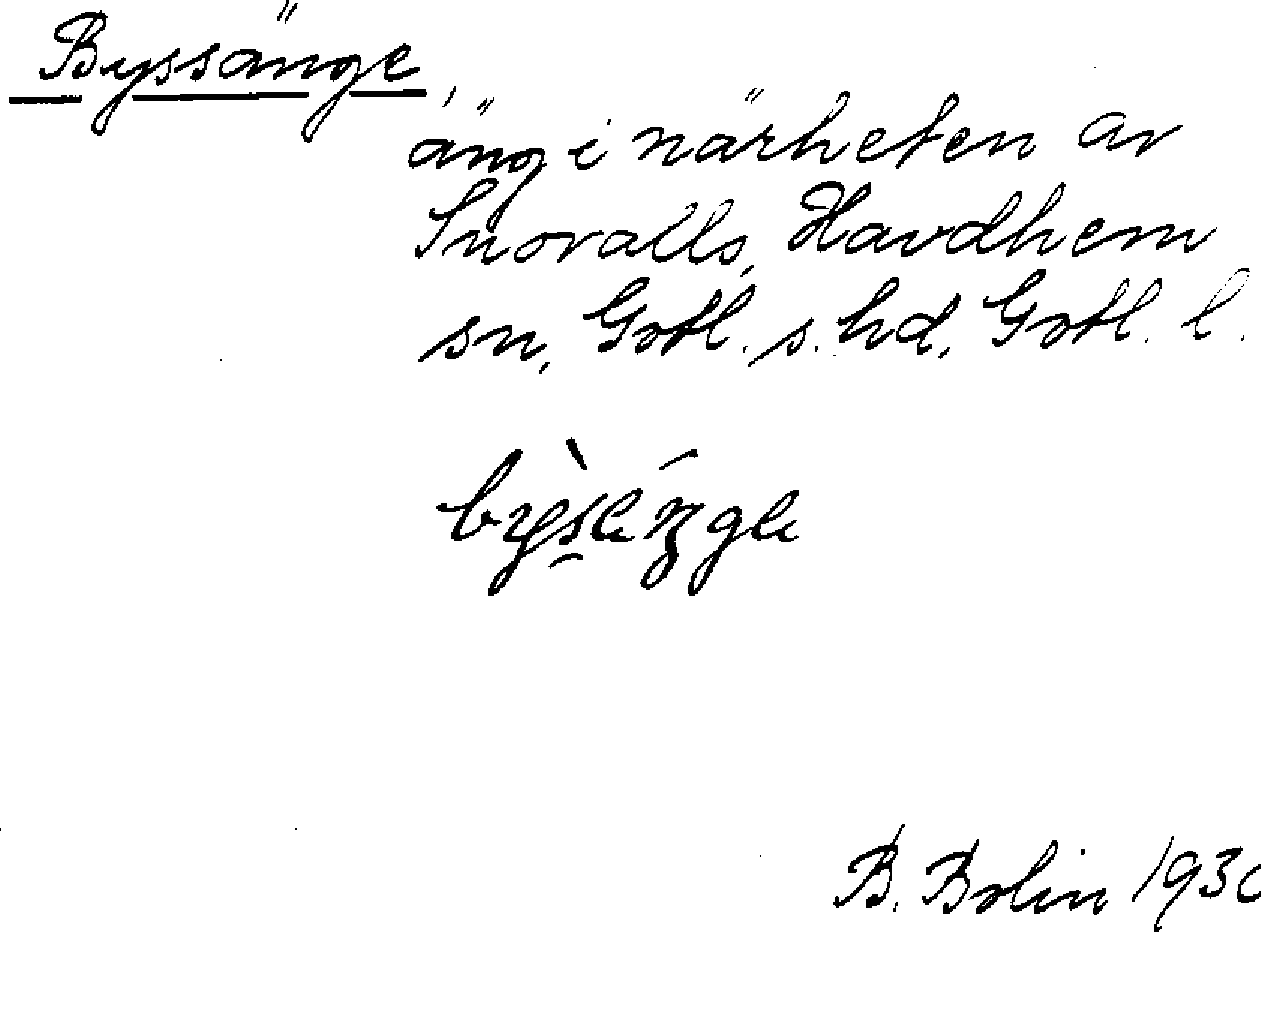 Byssänge,
äng i närheten av
Snovalls, Havdhem
sn, Gotl. s. hd, Gotl. l.
B. Bolin 1930